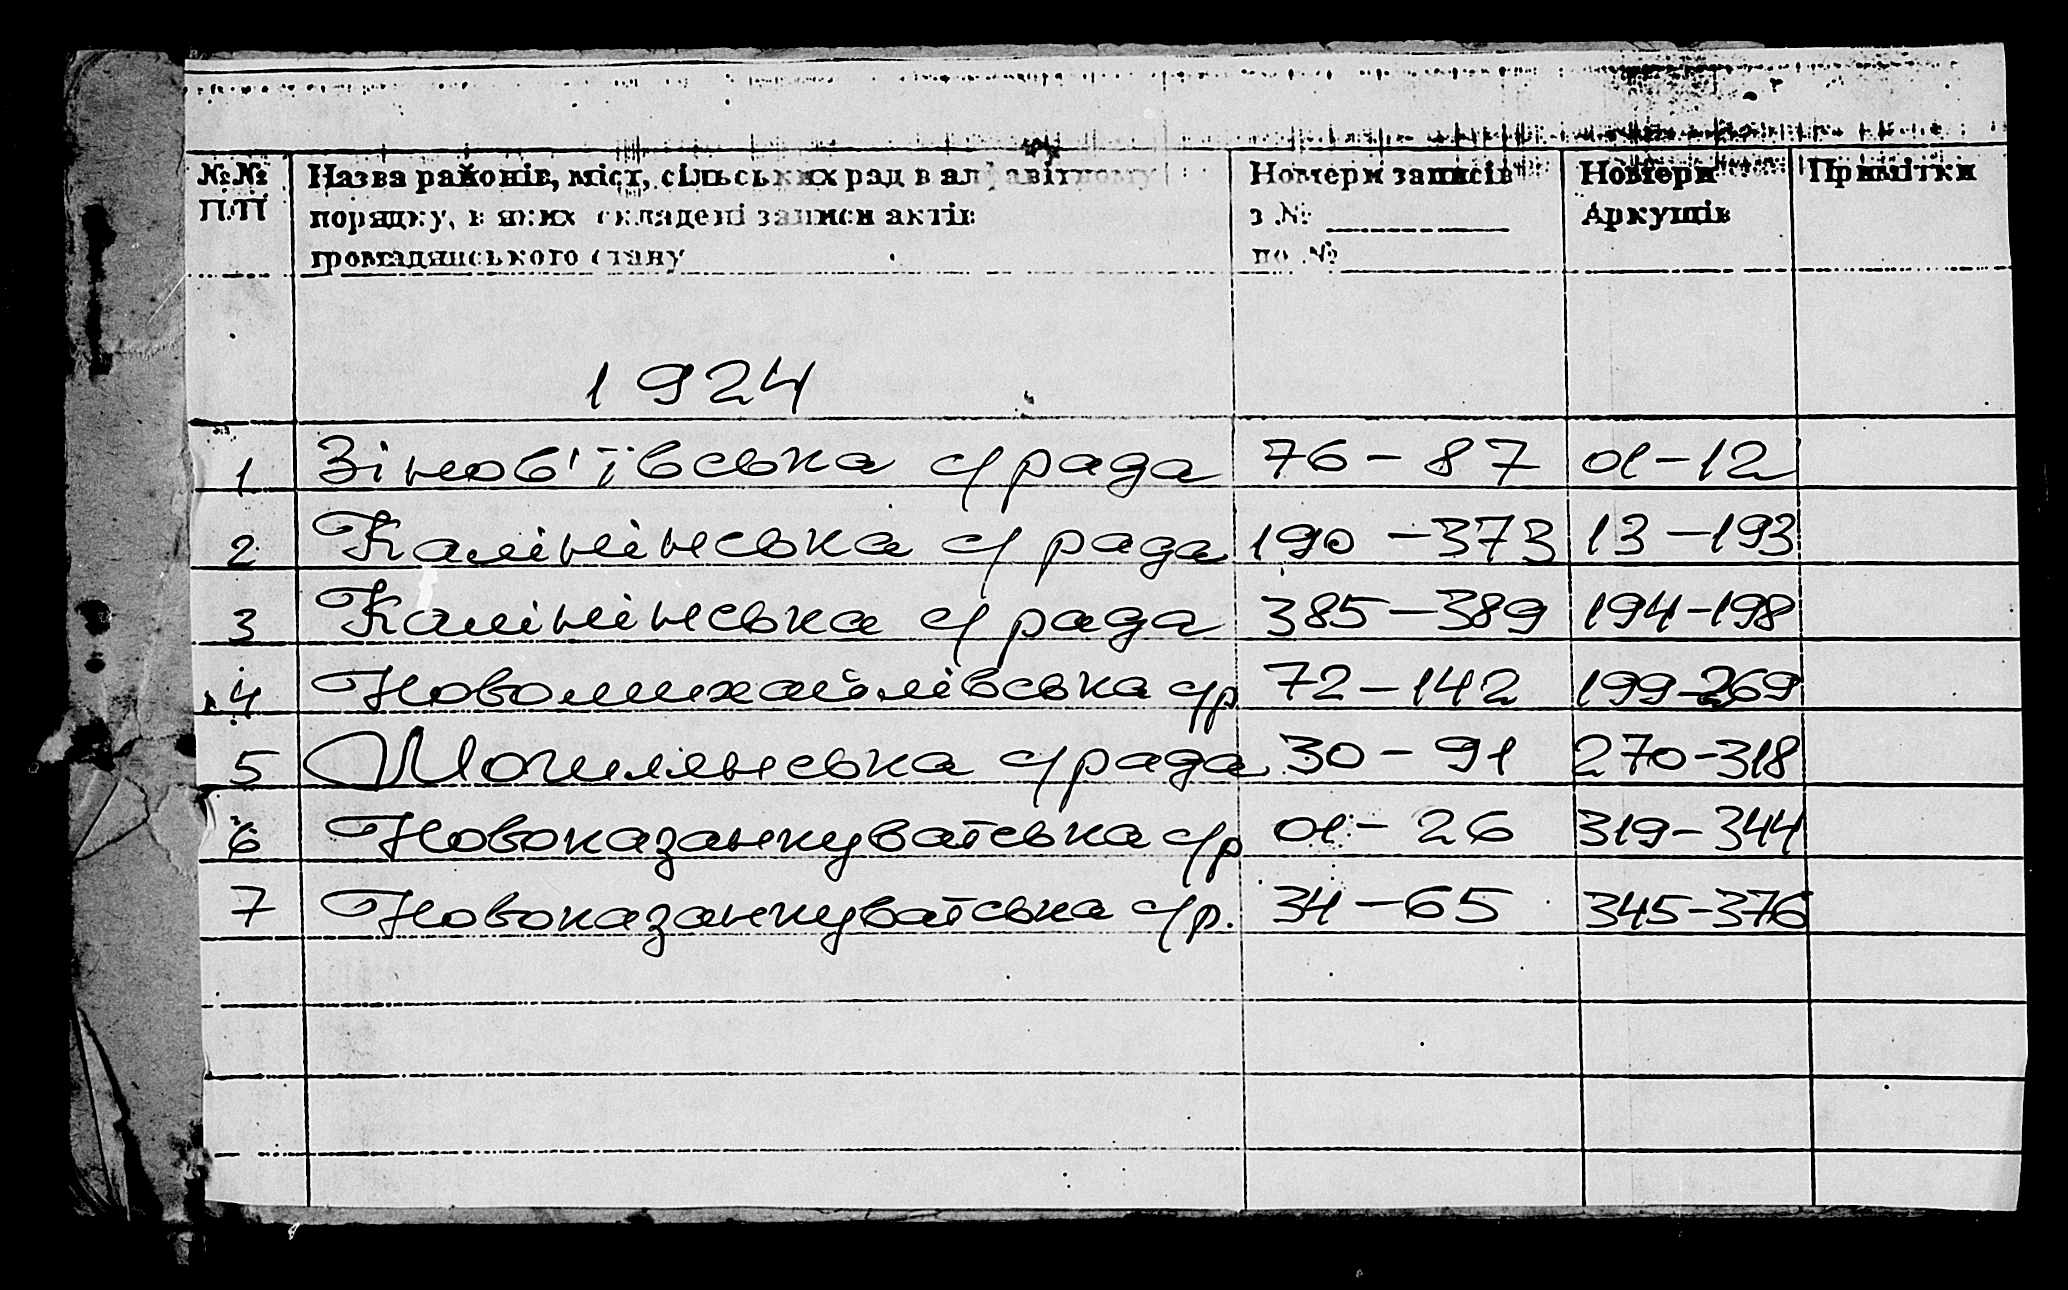 №№ Назва районів, міст, сільських рад в алфавітному Номери записів Номери Примітки
П/П порядку, в яких складені записи актів з № Аркушів
громадянського стану по №
1924
1 Зінов'ївська с/рада 76-87 01-12
2 Калінінська с/рада 190-373 13-193
3 Калінінська с/рада 385-389 194-198
4 Новомихайлівська с/р 72-142 199-269
5 с/рада 30-91 270-318
6 Новоказанкуватська с/р 01-26 319-344
7 Новоказанкуватська с/р. 34-65 345-376